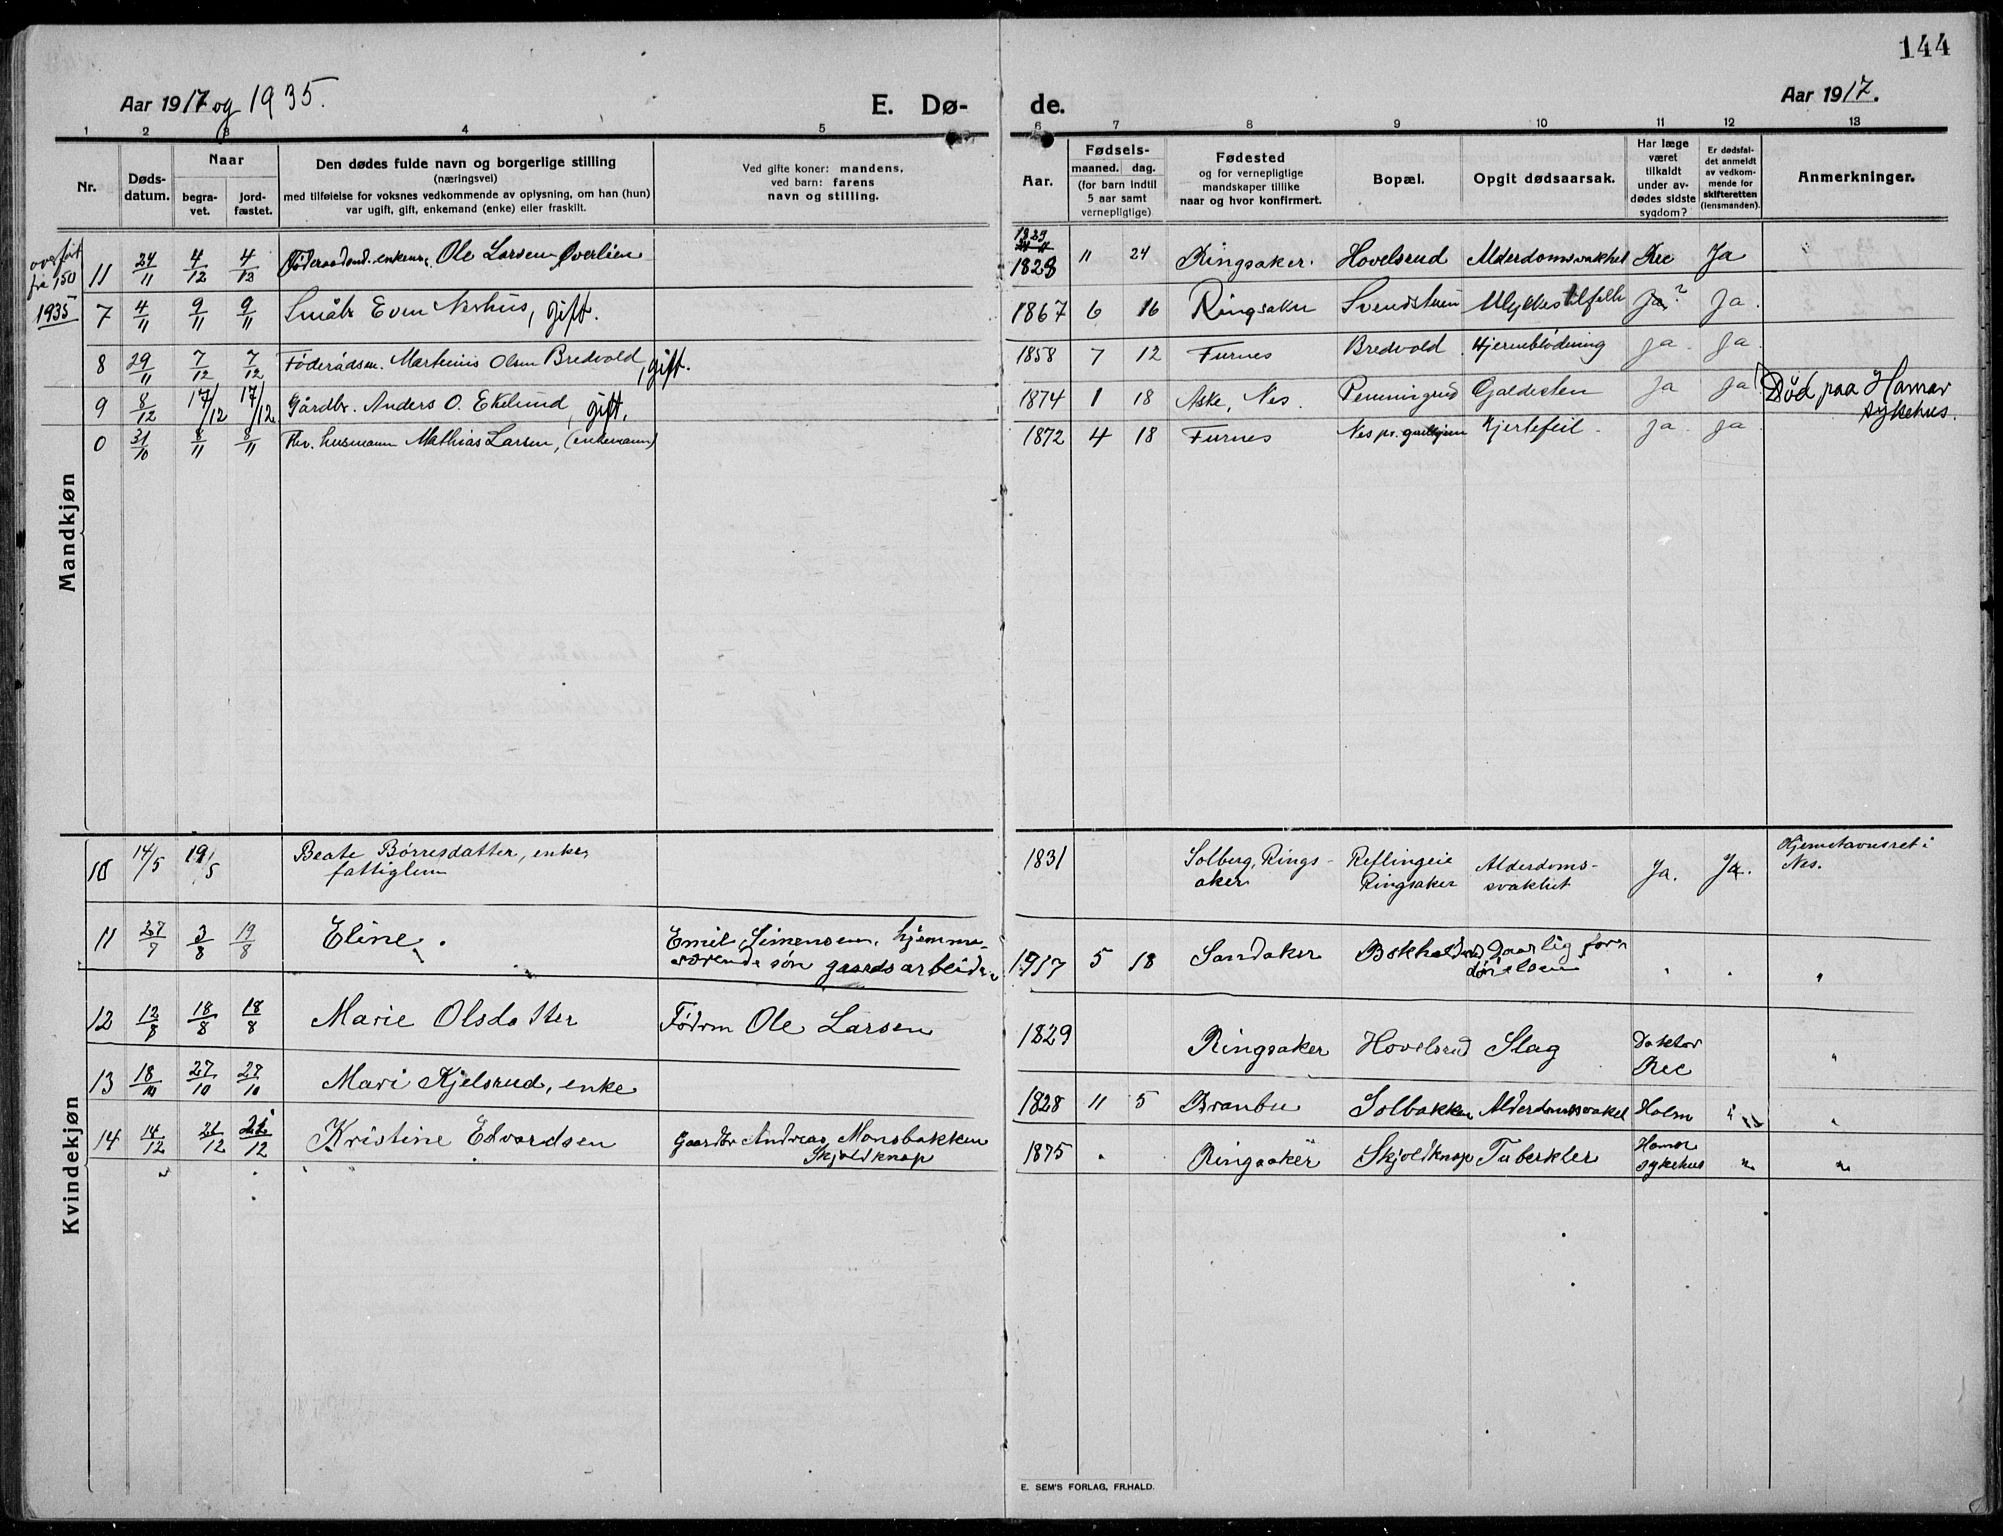 144
Aar 1917 og 1935.
E. Dø-
de.
Aar 1917.
1 2 3 4 5 6 7 8 9 10 11 12 13
Nr.
Døds-
datum.
Naar
begra-
vet.
jord-
fæstet.
Den dødes fulde navn og borgerlige stilling
(næringsvei)
med tilføielse for voksnes vedkommende av oplysning, om han (hun)
var ugift, gift, enkemand (enke) eller fraskilt.
Ved gifte koner: mandens,
ved barn: farens
navn og stilling.
Aar.
Fødsels-
maaned. dag.
(for barn indtil
5 aar samt
vernepligtige)
Fødested
og for vernepligtige
mandskaper tillike
naar og hvor konfirmert.
Bopæl.
Opgit dødsaarsak.
Har læge
været
tilkaldt
under av-
dødes sidste
sygdom?
Er dødsfal-
det anmeldt
av vedkom-
mende for
skifteretten
(lensmanden).
Anmerkninger.
overført
fra 150
1935
Mandkjøn
11 24/11 4/12 4/12 Ole Larsen Øverlien 1829 1828 11 24 Ringsaker. Hovelsrud Alderdomsvakhet Rec Ja
7 4/11 9/11 9/11 Småbr Even Nerhus, gift. 1867 6 16 Ringsaker Ulykkestilfelle Ja? Ja.
8 29/11 7/12 7/12 Føderådsm. Martinius Olsen Bredvold, gift. 1858 7 12 Furnes Bredvold Hjerneblødning Ja. Ja.
9 8/12 17/12 17/12 Gårdbr. Anders O. Ekelund, gift. 1874 1 18 Nes. Galdesten Ja Ja Død paa Hamar
sykehus.
0 31/10 8/11 8/11 fhv. husmann Mathias Larsen, (enkemann) 1872 4 18 Furnes Nes pr. Hjertefeil. Ja. Ja.
Kvindekjøn
10 14/5 19/5 Beate Børresdatter, enke,
fattiglem 1831 Solberg, Rings-
aker Ringsaker Alderdoms-
svakhet Ja. Ja. Hjemstavnsret i
Nes.
11 27/7 3/8 19/8 Eline. Emil Simensen, hjemme-
værende søn gaardsarbeider 1917 5 18 Sandaker Daarlig for-
døielsen " . "
12 12/8 18/8 18/8 Marie Olsdatter Fødrm Ole Larsen 1829 Ringsaker Hovelsrud Slag Doktor
Rec "
13 18/10 27/10 27/10 Mari Kjelsrud, enke 1828 11 5 Branbu Solbakken Alderdomssvakel Holm " "
14 14/12 21/12 21/12 Kristine Edvardsen Gaardbr Andreas Monsbakken
Skjoldknap 1875 . Ringsaker Skjoldknap Tuberkler Hamar
sykehus " "
E. SEM'S FORLAG, FR.HALD.